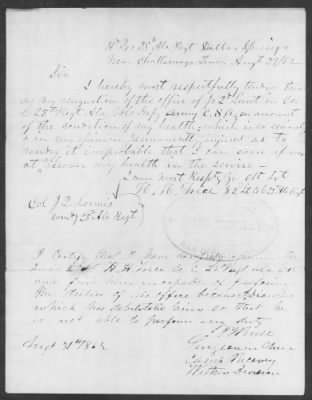 Hd Qrs 25th Ala Regt Dallas Springs
Near Chattanooga Tenn Augt 20/62
Sir
I hereby most respectfully tender this
as my resignation of the office of Jr 2d Lieut in Co
C 25th Regt Ala Vols Army C. S. A. on account
of the condition of my health, which is so seriously
in my opinion permanently injured as to
render it improbable that I can soon if ever
at recover my health in the service —
I am most Respty Yr Obt Svt
Jr 2d Lt Co C 25th Ala Regt
Col J Q Loomis
Comdg 25th Ala Regt
I Certify that I have
Lieut H. Co. C. 25th Regt Ala
and find him incapable of performing
the duties of his office because of
which has debilitated him so that he
is not able to perform any duty
Surgeon in Chief
Augt 21st 1862
Withers Division